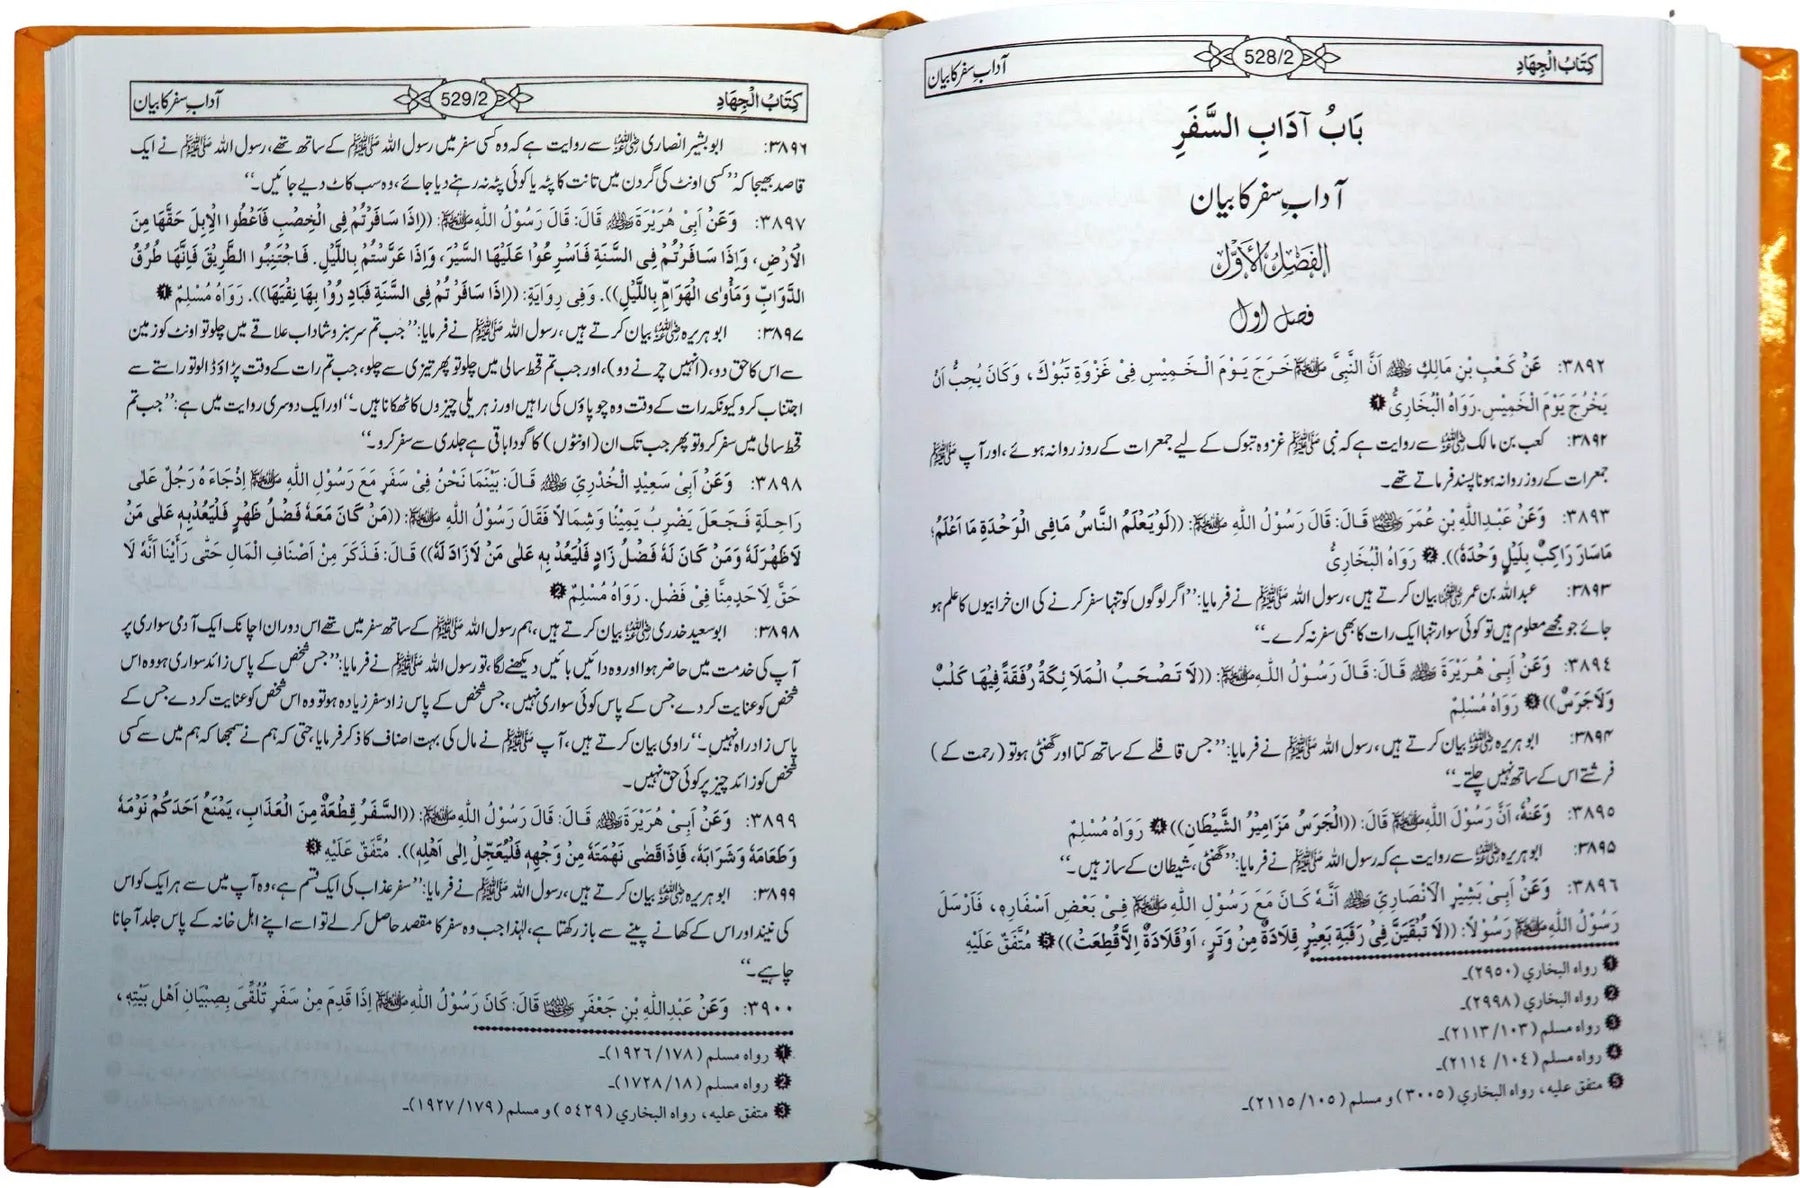 كِتَابُ الْجِهَادِ 528/2 آدابِ سفر کا بیان
بَابُ آدَابِ السَّفَرِ
آدابِ سفر کا بیان
الفَصْلُ الأَوَّلُ
فصل اول
٣٨٩٢: عَنْ كَعْبِ بْنِ مَالِكٍ ﷺ أَنَّ النَّبِىَّ ﷺ خَرَجَ يَوْمَ الْخَمِيْسِ فِىْ غَزْوَةِ تَبُوْكَ، وَكَانَ يُحِبُّ اَنْ
يَخْرُجَ يَوْمَ الْخَمِيْسِ. رَوَاهُ الْبُخَارِىُّ ❶
۳۸۹۲: کعب بن مالک رضی اللہ عنہ سے روایت ہے کہ نبی ﷺ غزوہ تبوک کے لیے جمعرات کے روز روانہ ہوئے، اور آپ ﷺ
جمعرات کے روز روانہ ہونا پسند فرماتے تھے۔
٣٨٩٣: وَعَنْ عَبْدِاللّٰهِ بْنِ عُمَرَ قَالَ: قَالَ رَسُوْلُ اللّٰهِ ﷺ: ((لَوْيَعْلَمُ النَّاسُ مَافِى الْوَحْدَةِ مَا اَعْلَمُ؛
مَاسَارَ رَاكِبٌ بِلَيْلٍ وَحْدَهُ)). ❷ رَوَاهُ الْبُخَارِىُّ
۳۸۹۳: عبداللہ بن عمر رضی اللہ عنہما بیان کرتے ہیں، رسول اللہ ﷺ نے فرمایا: ’’اگر لوگوں کو تنہا سفر کرنے کی ان خرابیوں کا علم ہو
جائے جو مجھے معلوم ہیں تو کوئی سوار تنہا ایک رات کا بھی سفر نہ کرے۔‘‘
٣٨٩٤: وَعَنْ اَبِىْ هُرَيْرَةَ قَالَ: قَالَ رَسُوْلُ اللّٰهِ ﷺ: ((لَا تَصْحَبُ الْمَلَائِكَةُ رُفْقَةً فِيْهَا كَلْبٌ
وَلَاجَرَسٌ)) ❸ رَوَاهُ مُسْلِمٌ
۳۸۹۴: ابو ہریرہ رضی اللہ عنہ بیان کرتے ہیں، رسول اللہ ﷺ نے فرمایا: ’’جس قافلے کے ساتھ کتا اور گھنٹی ہو تو (رحمت کے)
فرشتے اس کے ساتھ نہیں چلتے۔‘‘
٣٨٩٥: وَعَنْهُ، اَنَّ رَسُوْلَ اللّٰهِ ﷺ قَالَ: ((الْجَرَسُ مَزَامِيْرُ الشَّيْطَانِ)) ❹ رَوَاهُ مُسْلِمٌ
۳۸۹۵: ابو ہریرہ رضی اللہ عنہ سے روایت ہے کہ رسول اللہ ﷺ نے فرمایا: ’’گھنٹی، شیطان کے ساز ہیں۔‘‘
٣٨٩٦: وَعَنْ اَبِىْ بَشِيْرٍ الْاَنْصَارِيِّ اَنَّهُ كَانَ مَعَ رَسُوْلِ اللّٰهِ ﷺ فِىْ بَعْضِ اَسْفَارِهٖ، فَاَرْسَلَ
رَسُوْلُ اللّٰهِ ﷺ رَسُوْلًا: ((لَا تُبْقَيَنَّ فِىْ رَقَبَةِ بَعِيْرٍ قِلَادَةٌ مِنْ وَتَرٍ، اَوْقَلَادَةٌ اِلَّاقُطِعَتْ)) ❺ مُتَّفَقٌ عَلَيْهِ
❶ رواه البخاري (٢٩٥٠)۔
❷ رواه البخاري (٢٩٩٨)۔
❸ رواه مسلم (١٠٣/ ٢١١٣)۔
❹ رواه مسلم (١٠٤/ ٢١١٤)۔
❺ متفق عليه، رواه البخاري (٣٠٠٥) و مسلم (١٠٥/ ٢١١٥)۔
كِتَابُ الْجِهَادِ 529/2 آدابِ سفر کا بیان
۳۸۹۶: ابو بشیر انصاری رضی اللہ عنہ سے روایت ہے کہ وہ کسی سفر میں رسول اللہ ﷺ کے ساتھ تھے، رسول اللہ ﷺ نے ایک
قاصد بھیجا کہ ’’کسی اونٹ کی گردن میں تانت کا پٹہ یا کوئی پٹہ نہ رہنے دیا جائے، وہ سب کاٹ دیے جائیں۔‘‘
٣٨٩٧: وَعَنْ اَبِىْ هُرَيْرَةَ قَالَ: قَالَ رَسُوْلُ اللّٰهِ ﷺ: ((اِذَا سَافَرْتُمْ فِى الْخِصْبِ فَاَعْطُوا الْاِبِلَ حَقَّهَا مِنَ
الْاَرْضِ، وَاِذَا سَافَرْتُمْ فِى السَّنَةِ فَاَسْرِعُوْا عَلَيْهَا السَّيْرَ، وَاِذَا عَرَّسْتُمْ بِاللَّيْلِ. فَاجْتَنِبُوا الطَّرِيْقَ فَاِنَّهَا طُرُقُ
الدَّوَابِّ وَمَأْوَى الْهَوَامِّ بِاللَّيْلِ)). وَفِى رِوَايَةٍ: ((اِذَا سَافَرْتُمْ فِى السَّنَةِ فَبَادِرُوْا بِهَا نِقْيَهَا)). رَوَاهُ مُسْلِمٌ ❶
۳۸۹۷: ابو ہریرہ رضی اللہ عنہ بیان کرتے ہیں، رسول اللہ ﷺ نے فرمایا: ’’جب تم سرسبز و شاداب علاقے میں چلو تو اونٹ کو زمین
سے اس کا حق دو، (انہیں چرنے دو)، اور جب تم قحط سالی میں چلو تو پھر تیزی سے چلو، جب تم رات کے وقت پڑاؤ ڈالو تو راستے سے
اجتناب کرو کیونکہ رات کے وقت وہ چوپاؤں کی راہیں اور زہریلی چیزوں کا ٹھکانا ہیں۔‘‘ اور ایک دوسری روایت میں ہے: ’’جب تم
قحط سالی میں سفر کرو تو پھر جب تک ان (اونٹوں) کا گودا باقی ہے جلدی سے سفر کرو۔‘‘
٣٨٩٨: وَعَنْ اَبِىْ سَعِيْدٍ الْخُدْرِيِّ قَالَ: بَيْنَمَا نَحْنُ فِىْ سَفَرٍ مَعَ رَسُوْلِ اللّٰهِ ﷺ اِذْجَاءَهُ رَجُلٌ عَلٰى
رَاحِلَةٍ فَجَعَلَ يَضْرِبُ يَمِيْنًا وَشِمَالًا فَقَالَ رَسُوْلُ اللّٰهِ ﷺ: ((مَنْ كَانَ مَعَهُ فَضْلُ ظَهْرٍ فَلْيَعُدْبِهٖ عَلٰى مَنْ
لَاظَهْرَلَهُ وَمَنْ كَانَ لَهُ فَضْلُ زَادٍ فَلْيَعُدْ بِهٖ عَلٰى مَنْ لَازَادَ لَهُ)) قَالَ: فَذَكَرَ مِنْ اَصْنَافِ الْمَالِ حَتّٰى رَأَيْنَا اَنَّهُ لَا
حَقَّ لِاَحَدٍمِنَّا فِىْ فَضْلٍ. رَوَاهُ مُسْلِمٌ ❷
۳۸۹۸: ابو سعید خدری رضی اللہ عنہ بیان کرتے ہیں، ہم رسول اللہ ﷺ کے ساتھ سفر میں تھے اس دوران اچانک ایک آدمی سواری پر
آپ کی خدمت میں حاضر ہوا اور وہ دائیں بائیں دیکھنے لگا، تو رسول اللہ ﷺ نے فرمایا: ’’جس شخص کے پاس زائد سواری ہو وہ اس
شخص کو عنایت کر دے جس کے پاس کوئی سواری نہیں، جس شخص کے پاس زاد سفر زیادہ ہو تو وہ اس شخص کو عنایت کر دے جس کے
پاس زاد راہ نہیں۔‘‘ راوی بیان کرتے ہیں، آپ ﷺ نے مال کی بہت اصناف کا ذکر فرمایا، حتی کہ ہم نے سمجھا کہ ہم میں سے کسی
شخص کو زائد چیز پر کوئی حق نہیں۔
٣٨٩٩: وَعَنْ اَبِىْ هُرَيْرَةَ قَالَ: قَالَ رَسُوْلُ اللّٰهِ ﷺ: ((السَّفَرُ قِطْعَةٌ مِنَ الْعَذَابِ، يَمْنَعُ اَحَدَكُمْ نَوْمَهُ
وَطَعَامَهُ وَشَرَابَهُ، فَاِذَاقَضٰى نَهْمَتَهُ مِنْ وَجْهِهٖ فَلْيُعَجِّلْ اِلٰى اَهْلِهٖ)). مُتَّفَقٌ عَلَيْهِ ❸
۳۸۹۹: ابو ہریرہ رضی اللہ عنہ بیان کرتے ہیں، رسول اللہ ﷺ نے فرمایا: ’’سفر عذاب کی ایک قسم ہے، وہ آپ میں سے ہر ایک کو اس
کی نیند اور اس کے کھانے پینے سے باز رکھتا ہے، لہٰذا جب وہ سفر کا مقصد حاصل کر لے تو اسے اپنے اہل خانہ کے پاس جلد آ جانا
چاہیے۔‘‘
٣٩٠٠: وَعَنْ عَبْدِاللّٰهِ بْنِ جَعْفَرٍ قَالَ: كَانَ رَسُوْلُ اللّٰهِ ﷺ اِذَا قَدِمَ مِنْ سَفَرٍ تُلُقِّىَ بِصِبْيَانِ اَهْلِ بَيْتِهٖ،
❶ رواه مسلم (١٧٨/ ١٩٢٦)۔
❷ رواه مسلم (١٨/ ١٧٢٨)۔
❸ متفق عليه، رواه البخاري (٥٤٢٩) و مسلم (١٧٩/ ١٩٢٧)۔